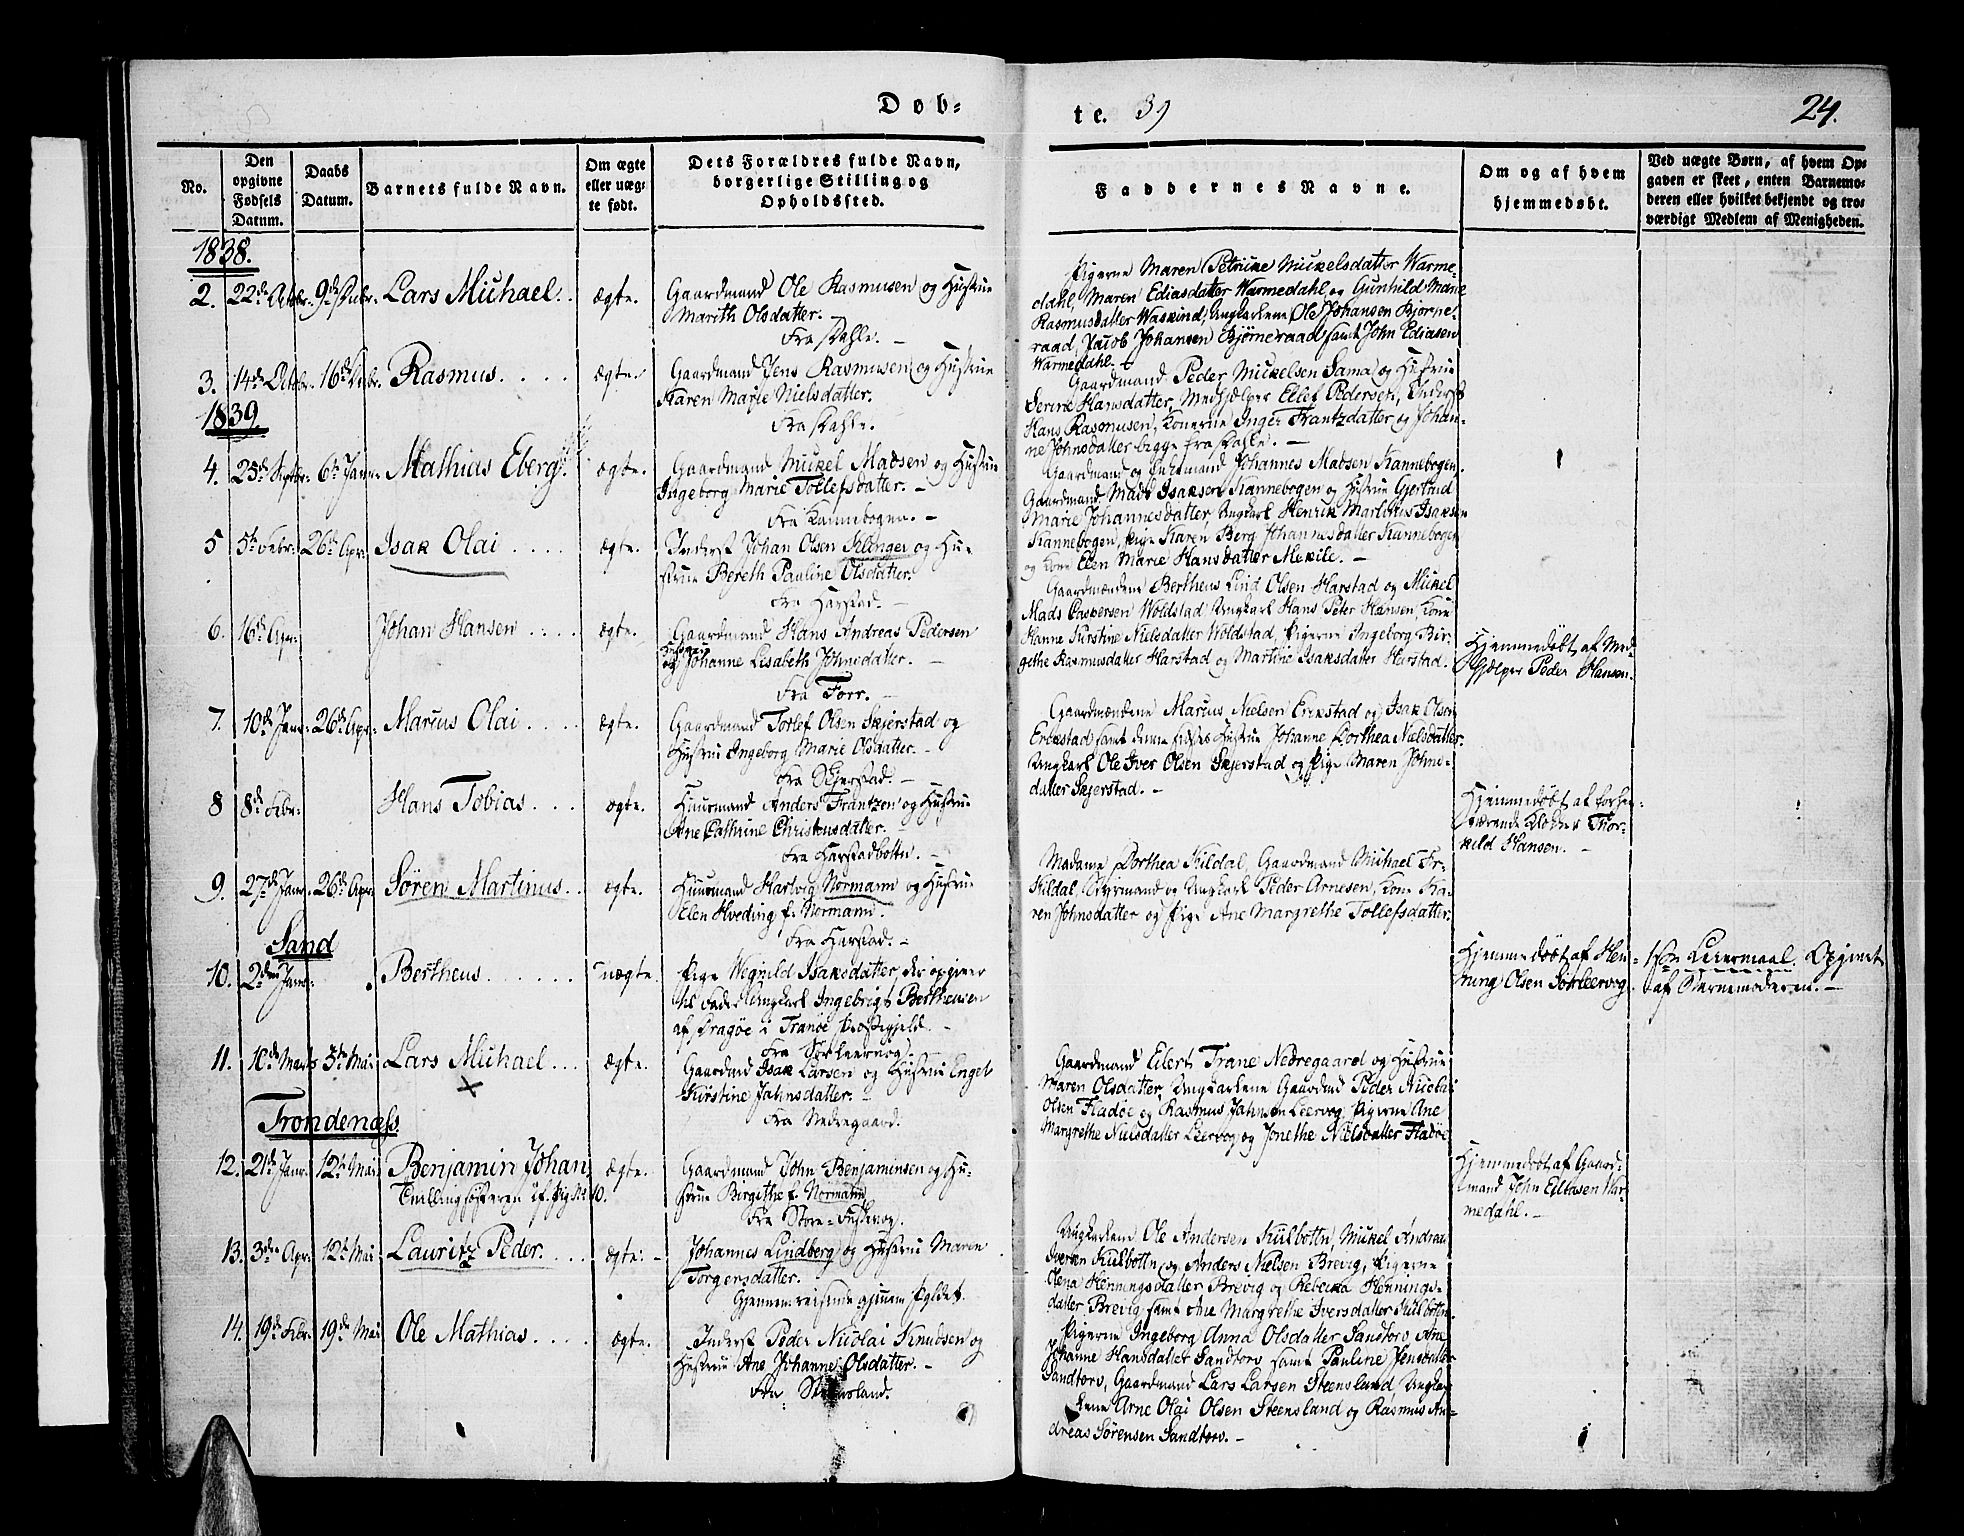 Døb=
te. 39
24.
No.
Den
opgivne
Fødsels
Datum.
Daabs
Datum.
Barnets fulde Navn.
Om ægte
eller uæg=
te født.
Dets Forældres fulde Navn,
borgerlige Stilling og
Opholdssted.
Faddernes Navne.
Om og af hvem
hjemmedøbt.
Ved uægte Børn, af hvem Op=
gaven er skeet, enten Barnemo=
deren eller hvilket bekjendt og tro=
værdigt Medlem af Menigheden.
1838.
2. 22de Octbr. 9de Lars Michael. ægte.
Gaardmand Ole Rasmusen og Hustrue
Marith Olsdatter.
Fra Dahle.
Pigerne Maren Petrike Mickelsdatter Warme=
dahl, Maren Ediasdatter Warmedahl, og Gunhild Mane
Rasmusdatter Waskind, Ungkarlene Ole Johansen Bjørne=
raad, Jacob Johansen Bjørneraad samt John Ediasen
Warmedahl.
3. 14de Octbr. 16de Rasmus. ægte.
Gaardmand Jens Rasmusen og Hustrue
Karen Marie Nielsdatter.
Fra Dahle.
Gaardmand Peder Mickelsen Sama og Hustrue
Serine Hansdatter, Medhjelper Ellef Pedersen, Inderst
Hans Rasmusen, Konerne Inger Frantzdatter og Johan=
ne Johnsdatter begge fra Dahle.
1839.
4. 25de Septbr. 6te Janr. Mathias Eberg. ægte.
Gaardmand Mickel Madsen og Hustrue
Ingeborg Marie Tollefsdatter.
Fra Kannebogen.
Gaardmand og Johannes Madsen Kannebogen.
Gaardmand Mads Isaksen Kannebogen og Hustrue Gjertrud
Marie Johannesdatter, Ungkarl Henrik Martinus Isaksen
Kannebogen, Pige Karen Berg Johannesdatter Kannebogen
og Kone Elen Marie Hansdatter Mekile.
5 5te Febr. 26de Apr. Isak Olai ægte.
Inderst Johan Olsen Klinger og Hu=
strue Bereth Pauline Olsdatter.
Fra Harstad.
Gaardmændene Bertheus Lind Olsen Harstad og Mickel
Mads Caspersen Woldstad Ungkarl Hans Peter Hansen, Kone
Hanne Kirstine Nielsdatter Woldstad, Pigerne Ingeborg Bir=
gethe Rasmusdatter Harstad og Martine Isaksdatter Harstad.
6. 16de Apr. Johan Hansen ægte.
Gaardmand Hans Andreas Pedersen
og Hustrue Johanne Lisabeth Johnsdatter.
Fra Torr.
Hjemmedøbt af Med=
hjelper Peder Hansen.
7. 10de Janr. 26de Apr. Marcus Olai ægte.
Gaardmand Tollef Olsen Skjerstad og
Hustrue Ingeborg Marie Olsdatter.
Fra Skjerstad.
Gaardmændene Marcus Nielsen Erikstad og Isak Olsen
Erikstad samt denne sidstes Hustrue Johanne Dorthea Nielsdatter.
Ungkarl Ole Iver Olsen Skjerstad og Pige Maren Johns=
datter Skjerstad.
8 8de Febr. Hans Tobias. ægte.
Huusmand Anders Frantzen og Hustrue
Ane Cathrine Christensdatter.
Fra Harstadbottn.
Hjemmedøbt af forhen=
værende Klokker Thor=
kild Hansen.
9. 27de Janr. 26de Apr. Søren Martinus. ægte.
Huusmand Hartvig Normann og Hustrue
Elen Hveding f. Normann.
Fra Harstad.
Madame Dorthea Kildal, Gaardmand Michael Fr.
Kildal, Styrmand og Ungkarl Peder Arnesen, Kone Ka=
ren Johnsdatter og Pige Ane Margrethe Tollefsdatter.
Sand
10. 2den Janr. Bertheus uægte.
Pige Wegnild Isaksdatter, der opgiver
til Fader Ungkarl Ingebrigt Bertheusen
af Dragøe i Tranøe Præstegjeld.
Fra Sørleervog.
Hjemmedøbt af Hen=
ning Olsen Sørleervog.
1ste Leiermaal. Opgivet
af Barnemoderen.
11. 10de Marts 3die Mai Lars Michael ægte.
Gaardmd Isak Larsen og Hustrue Engel
Kirstine Jahnsdatter.
Fra Nedregaard.
Gaardmand Eilert Trane Nedregaard og Hustrue
Maren Olsdatter, Ungkarlene Gaardmd Peder Nicolai
Olsen Fladøe og Rasmus Jahnsen Leervog, Pigerne Ane
Margrethe Nielsdatter Leervog og Jonethe Nielsdatter Fladøe
Trondenæss
12. 21de Janr. 12te Mai Benjamin Johan ægte.
Tvillingsøsteren cf. pig. No. 10.
Gaardmand John Benjaminsen og Hu=
strue Birgithe f. Normann
Fra Store=
Hjemmedøbt af Gaard=
mand John Ediasen War=
medahl.
13. 3die Apr. 12te Mai Lauritz Peder. ægte.
Johannes Lindberg og Hustrue Maren
Torgersdatter.
Gjennemreisende gjennem
Ungkarlene Ole Andersen Kulbottn, Mickel Andreas
Iversen Kulbottn og Anders Nielsen Brevig, Pigerne
Olena Henningsdatter Brevig og Rebecka Hennings=
datter Brevig samt Ane Margrethe Iversdatter Kulbottn.
14. 19de Febr. 19de Mai Ole Mathias. ægte.
Inderst Peder Nicolai Knudsen og
Hustrue Ane Johanne Olsdatter.
Fra Steensland.
Pigerne Ingeborg Anna Olsdatter Sandtorv Ane
Johanne Hansdatter Sandtorv samt Pauline Jensdatter
Sandtorv, Gaardmand Lars Larsen Steensland, Ungkar=
lene Arne Olai Olsen Steensland og Rasmus An=
dreas Sørensen Sandtorv.